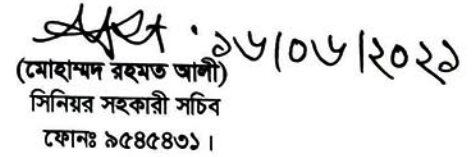 ১৬/০৬/২০২১
(মোহাম্মদ রহমত আলী)
সিনিয়র সহকারী সচিব
ফোনঃ ৯৫৪৫৪৩১।